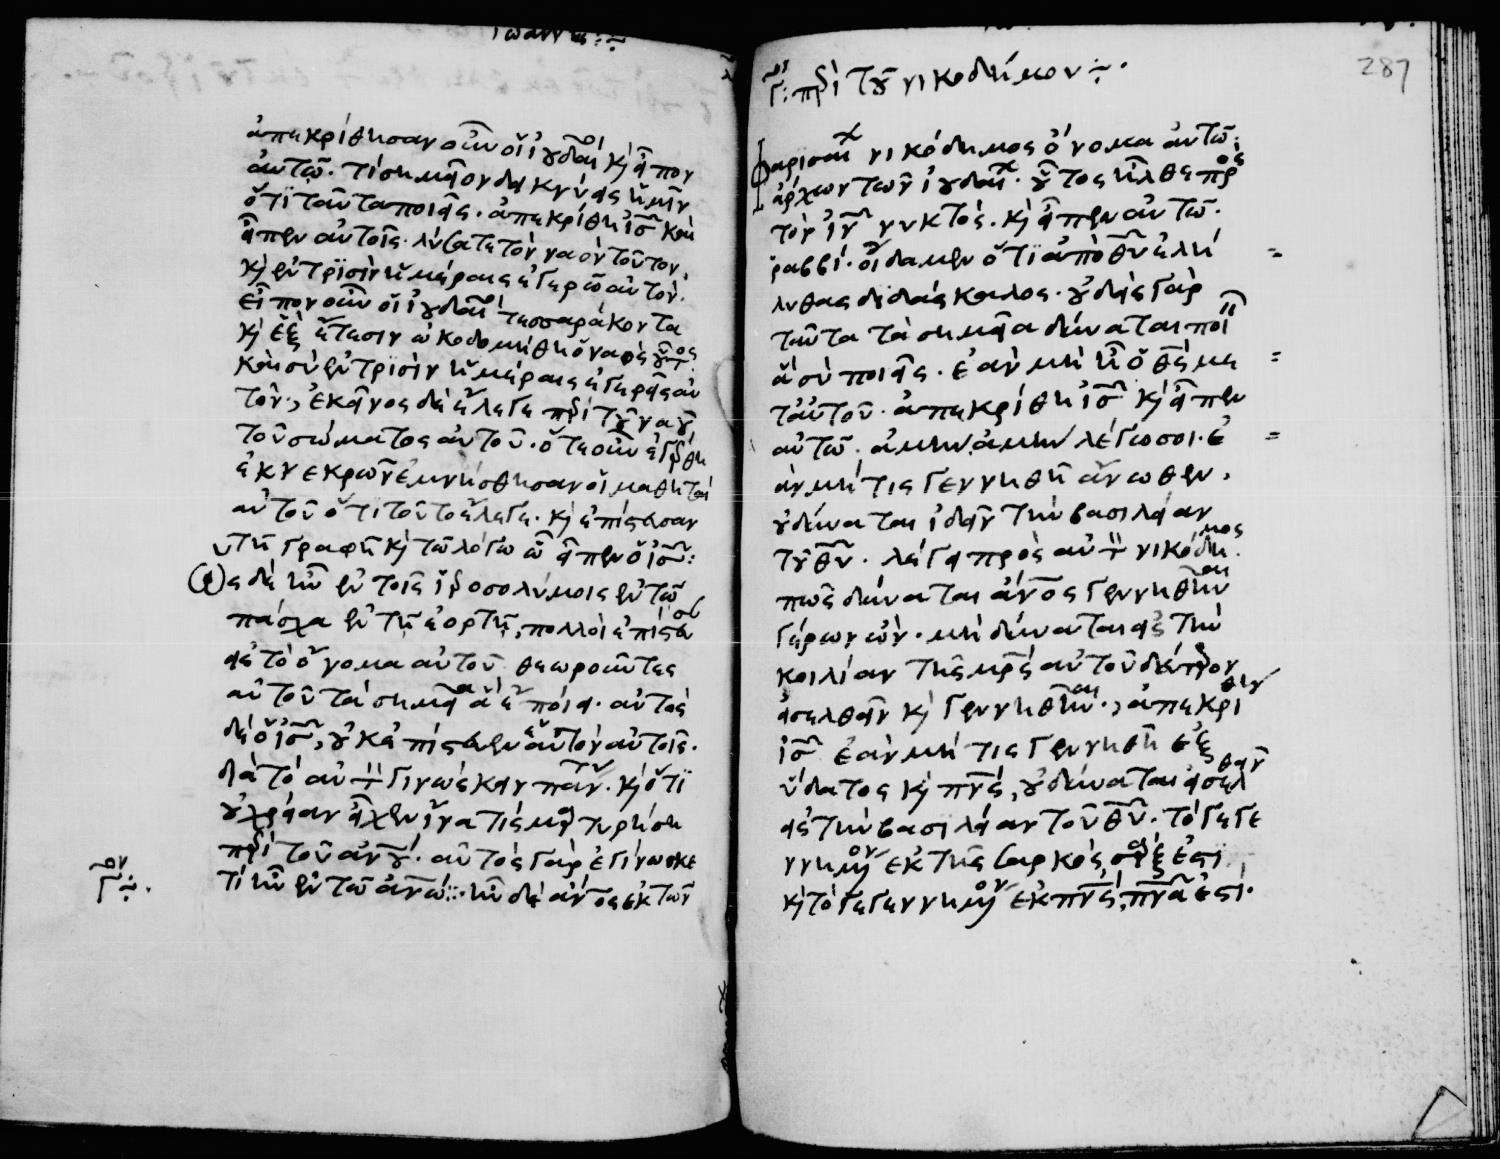 Ἰωάννης
ἀπεκρίθησαν οὖν οἱ ἰουδαῖοι κὶ εἶπον
αὐτῶ. τί σημεῖον δεικνύεις ἡμῖν
ὅτι ταῦτα ποιεῖς. ἀπεκρίθη ἰς̅ καὶ
εἶπεν αὐτοῖς. λύσατε τὸν ναὸν τοῦτον,
κὶ ἐν τρισὶν ἡμέραις ἐγερῶ αὐτόν.
εἶπον οὖν οἱ ἰουδαῖοι τεσσαράκοντα
κὶ ἓξ ἔτεσιν ὠκοδομήθη ὁ ναὸς οὗτος
καὶ σὺ ἐν τρισὶν ἡμέραις ἐγερεῖς αὐ
τόν, ἐκεῖνος δὲ ἔλεγε περὶ τοῦ ναοῦ
τοῦ σώματος αὐτοῦ. ὅτε οὖν ἐγέρθη
ἐκ νεκρῶν ἐμνήσθησαν οἱ μαθηταὶ
αὐτοῦ ὅτι τοῦτο ἔλεγε. κὶ ἐπίστευσαν
τῆ γραφῆ κὶ τῶ λόγω ὧ εἶπεν ὁ ἰς̅:
ὡς δὲ ἦν ἐν τοῖς ἱεροσολύμοις ἐν τῶ
πάσχα ἐν τῆ ἑορτῆ, πολλοὶ ἐπίστευσαν
εἰς τὸ ὄνομα αὐτοῦ θεωροῦντες
αὐτοῦ τὰ σημεῖα ἃ ἐποίει. αὐτὸς
δὲ ὁ ἰς̅, οὐκ ἐπίστευεν ἑαὐτὸν αὐτοῖς.
διὰ τὸ αὐτὸν γινώσκειν πάντας. κὶ ὅτι
οὐ χρείαν εἶχεν ἵνα τὶς μαρτυρήση
περὶ τοῦ ἀνου. αὐτὸς γὰρ ἐγίνωσκε
τί ἦν ἐν τῶ ἀνω:. ἦν δὲ ἄνος ἐκ τῶν
Γον
Γ: περὶ τοῦ νικοδήμου
287
Φαρισαίων νικόδημος ὄνομα αὐτῶ.
ἄρχων τῶν ἰουδαίων. οὗτος ἦλθε πρὸς
τὸν ἰν̅ νυκτὸς. κὶ εἶπεν αὐτῶ.
ῥαββί. οἴδαμεν ὅτι ἀπὸ θυ̅ ἐλή
λυθας διδάσκαλος. οὐδεὶς γὰρ
ταῦτα τὰ σημεῖα δύναται ποιεῖν
ἃ σὺ ποιεῖς. ἐὰν μὴ ἦ ὁ θς̅ με
τ᾽αὐτοῦ. ἀπεκρίθη ἰς̅ κὶ εἶπεν
αὐτῶ. ἀμὴν ἀμὴν λέγω σοι. ἐ
ὰν μή τις γεννηθῆ ἄνωθεν,
οὐ δύναται ἰδεῖν τὴν βασιλείαν
τοῦ θυ̅. λέγει πρὸς αὐτὸν νικόδημος.
πῶς δύναται ἄνος γεννηθῆναι
γέρων ὤν. μὴ δύναται εἰς τὴν
κοιλίαν τῆς μρς̅ αὐτοῦ δεύτερον
εἰσελθεῖν κὶ γεννηθῆναι., ἀπεκρίθη
ἰς̅ ἐὰν μή τις γεννηθῆ ἐξ
ὕδατος κὶ πνς̅, οὐ δύναται εἰσελθεῖν
εἰς τὴν βασιλείαν τοῦ θυ̅. τὸ γεγε
ννημένον ἐκ τῆς σαρκὸς, σάρξ ἐστι.
κὶ τὸ γεγεννημένον ἐκ πνς̅, πνα̅ ἐστί.